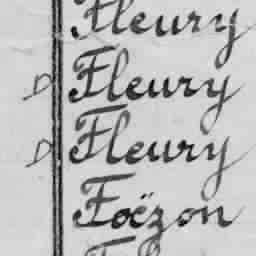 Fleury
D Fleury
D Fleury
Foëzon